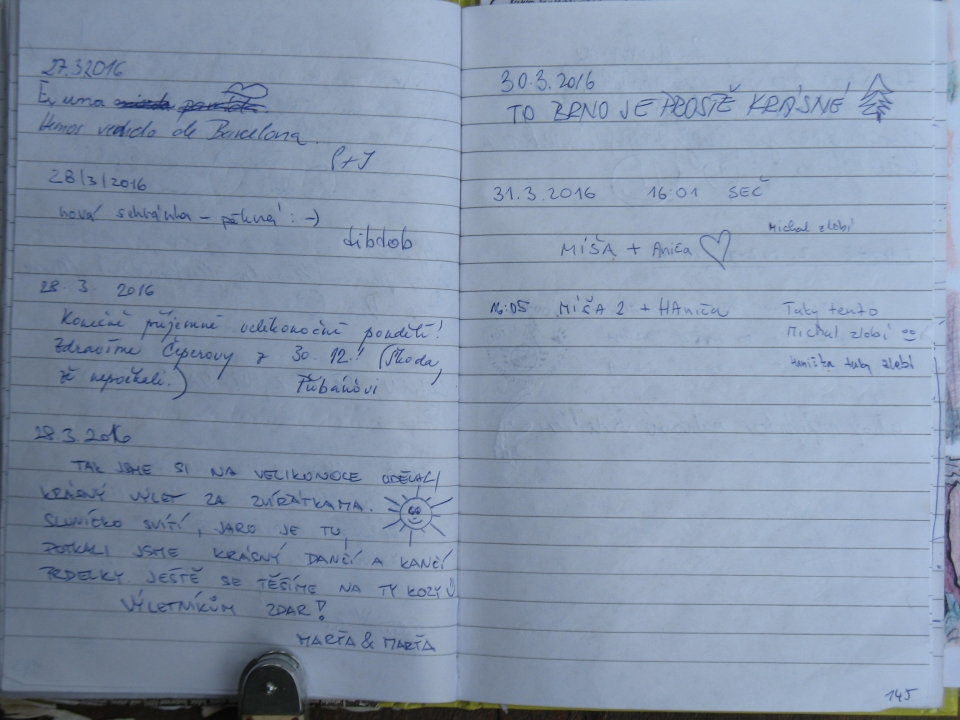 27.3.2016
Es una
Hemos venido de Barcelona.
P+J
28/3/2016
nová schránka - pěkná :-)
dibdob
28. 3. 2016
Konečně příjemné velikonoční pondělí!
Zdravíme Čiperovy z 30. 12.! (Škoda,
že nepočkali.)
28.3.2016
TAK JSME SI NA VELIKONOCE UDĚLALI
KRÁSNÝ VÝLET ZA ZVÍŘÁTKAMA.
SLUNÍČKO SVÍTÍ, JARO JE TU,
POTKALI JSME KRÁSNÝ DANČÍ A KANČÍ
PRDELKY JEŠTĚ SE TĚŠÍME NA TY KOZY
VÝLETNÍKŮM ZDAR!
MARŤA & MARŤA
30.3.2016
TO BRNO JE PROSTĚ KRÁSNÉ
31.3.2016 16:01 SEČ
Michal zlobí
MÍŠA + Aniča
16:05 MÍŠA 2 + HAniča
Taky tento
Michal zlobí
Hanička taky zlobí
145